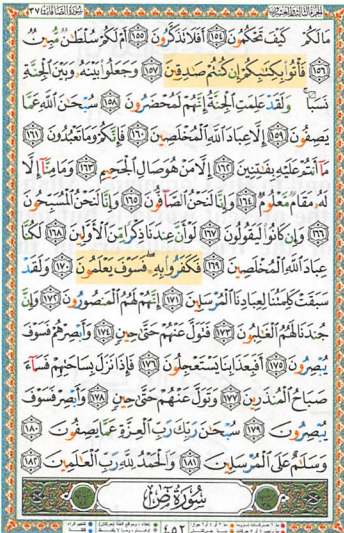 سورة الصافات ٣٧
مَا لَكُمْ كَيْفَ تَحْكُمُونَ ١٥٤ أَفَلَا تَذَكَّرُونَ ١٥٥ أَمْ لَكُمْ سُلْطَٰنٌ مُّبِينٌ
١٥٦ فَأْتُوا۟ بِكِتَٰبِكُمْ إِن كُنتُمْ صَٰدِقِينَ ١٥٧ وَجَعَلُوا۟ بَيْنَهُۥ وَبَيْنَ ٱلْجِنَّةِ
نَسَبًا ۚ وَلَقَدْ عَلِمَتِ ٱلْجِنَّةُ إِنَّهُمْ لَمُحْضَرُونَ ١٥٨ سُبْحَٰنَ ٱللَّهِ عَمَّا
يَصِفُونَ ١٥٩ إِلَّا عِبَادَ ٱللَّهِ ٱلْمُخْلَصِينَ ١٦٠ فَإِنَّكُمْ وَمَا تَعْبُدُونَ ١٦١
مَآ أَنتُمْ عَلَيْهِ بِفَٰتِنِينَ ١٦٢ إِلَّا مَنْ هُوَ صَالِ ٱلْجَحِيمِ ١٦٣ وَمَا مِنَّآ إِلَّا
لَهُۥ مَقَامٌ مَّعْلُومٌ ١٦٤ وَإِنَّا لَنَحْنُ ٱلصَّآفُّونَ ١٦٥ وَإِنَّا لَنَحْنُ ٱلْمُسَبِّحُونَ
١٦٦ وَإِن كَانُوا۟ لَيَقُولُونَ ١٦٧ لَوْ أَنَّ عِندَنَا ذِكْرًا مِّنَ ٱلْأَوَّلِينَ ١٦٨ لَكُنَّا
عِبَادَ ٱللَّهِ ٱلْمُخْلَصِينَ ١٦٩ فَكَفَرُوا۟ بِهِۦ ۖ فَسَوْفَ يَعْلَمُونَ ١٧٠ وَلَقَدْ
سَبَقَتْ كَلِمَتُنَا لِعِبَادِنَا ٱلْمُرْسَلِينَ ١٧١ إِنَّهُمْ لَهُمُ ٱلْمَنصُورُونَ ١٧٢ وَإِنَّ
جُندَنَا لَهُمُ ٱلْغَٰلِبُونَ ١٧٣ فَتَوَلَّ عَنْهُمْ حَتَّىٰ حِينٍ ١٧٤ وَأَبْصِرْهُمْ فَسَوْفَ
يُبْصِرُونَ ١٧٥ أَفَبِعَذَابِنَا يَسْتَعْجِلُونَ ١٧٦ فَإِذَا نَزَلَ بِسَاحَتِهِمْ فَسَآءَ
صَبَاحُ ٱلْمُنذَرِينَ ١٧٧ وَتَوَلَّ عَنْهُمْ حَتَّىٰ حِينٍ ١٧٨ وَأَبْصِرْ فَسَوْفَ
يُبْصِرُونَ ١٧٩ سُبْحَٰنَ رَبِّكَ رَبِّ ٱلْعِزَّةِ عَمَّا يَصِفُونَ ١٨٠
وَسَلَٰمٌ عَلَى ٱلْمُرْسَلِينَ ١٨١ وَٱلْحَمْدُ لِلَّهِ رَبِّ ٱلْعَٰلَمِينَ ١٨٢
سُورَةُ صٓ
٤٥٢